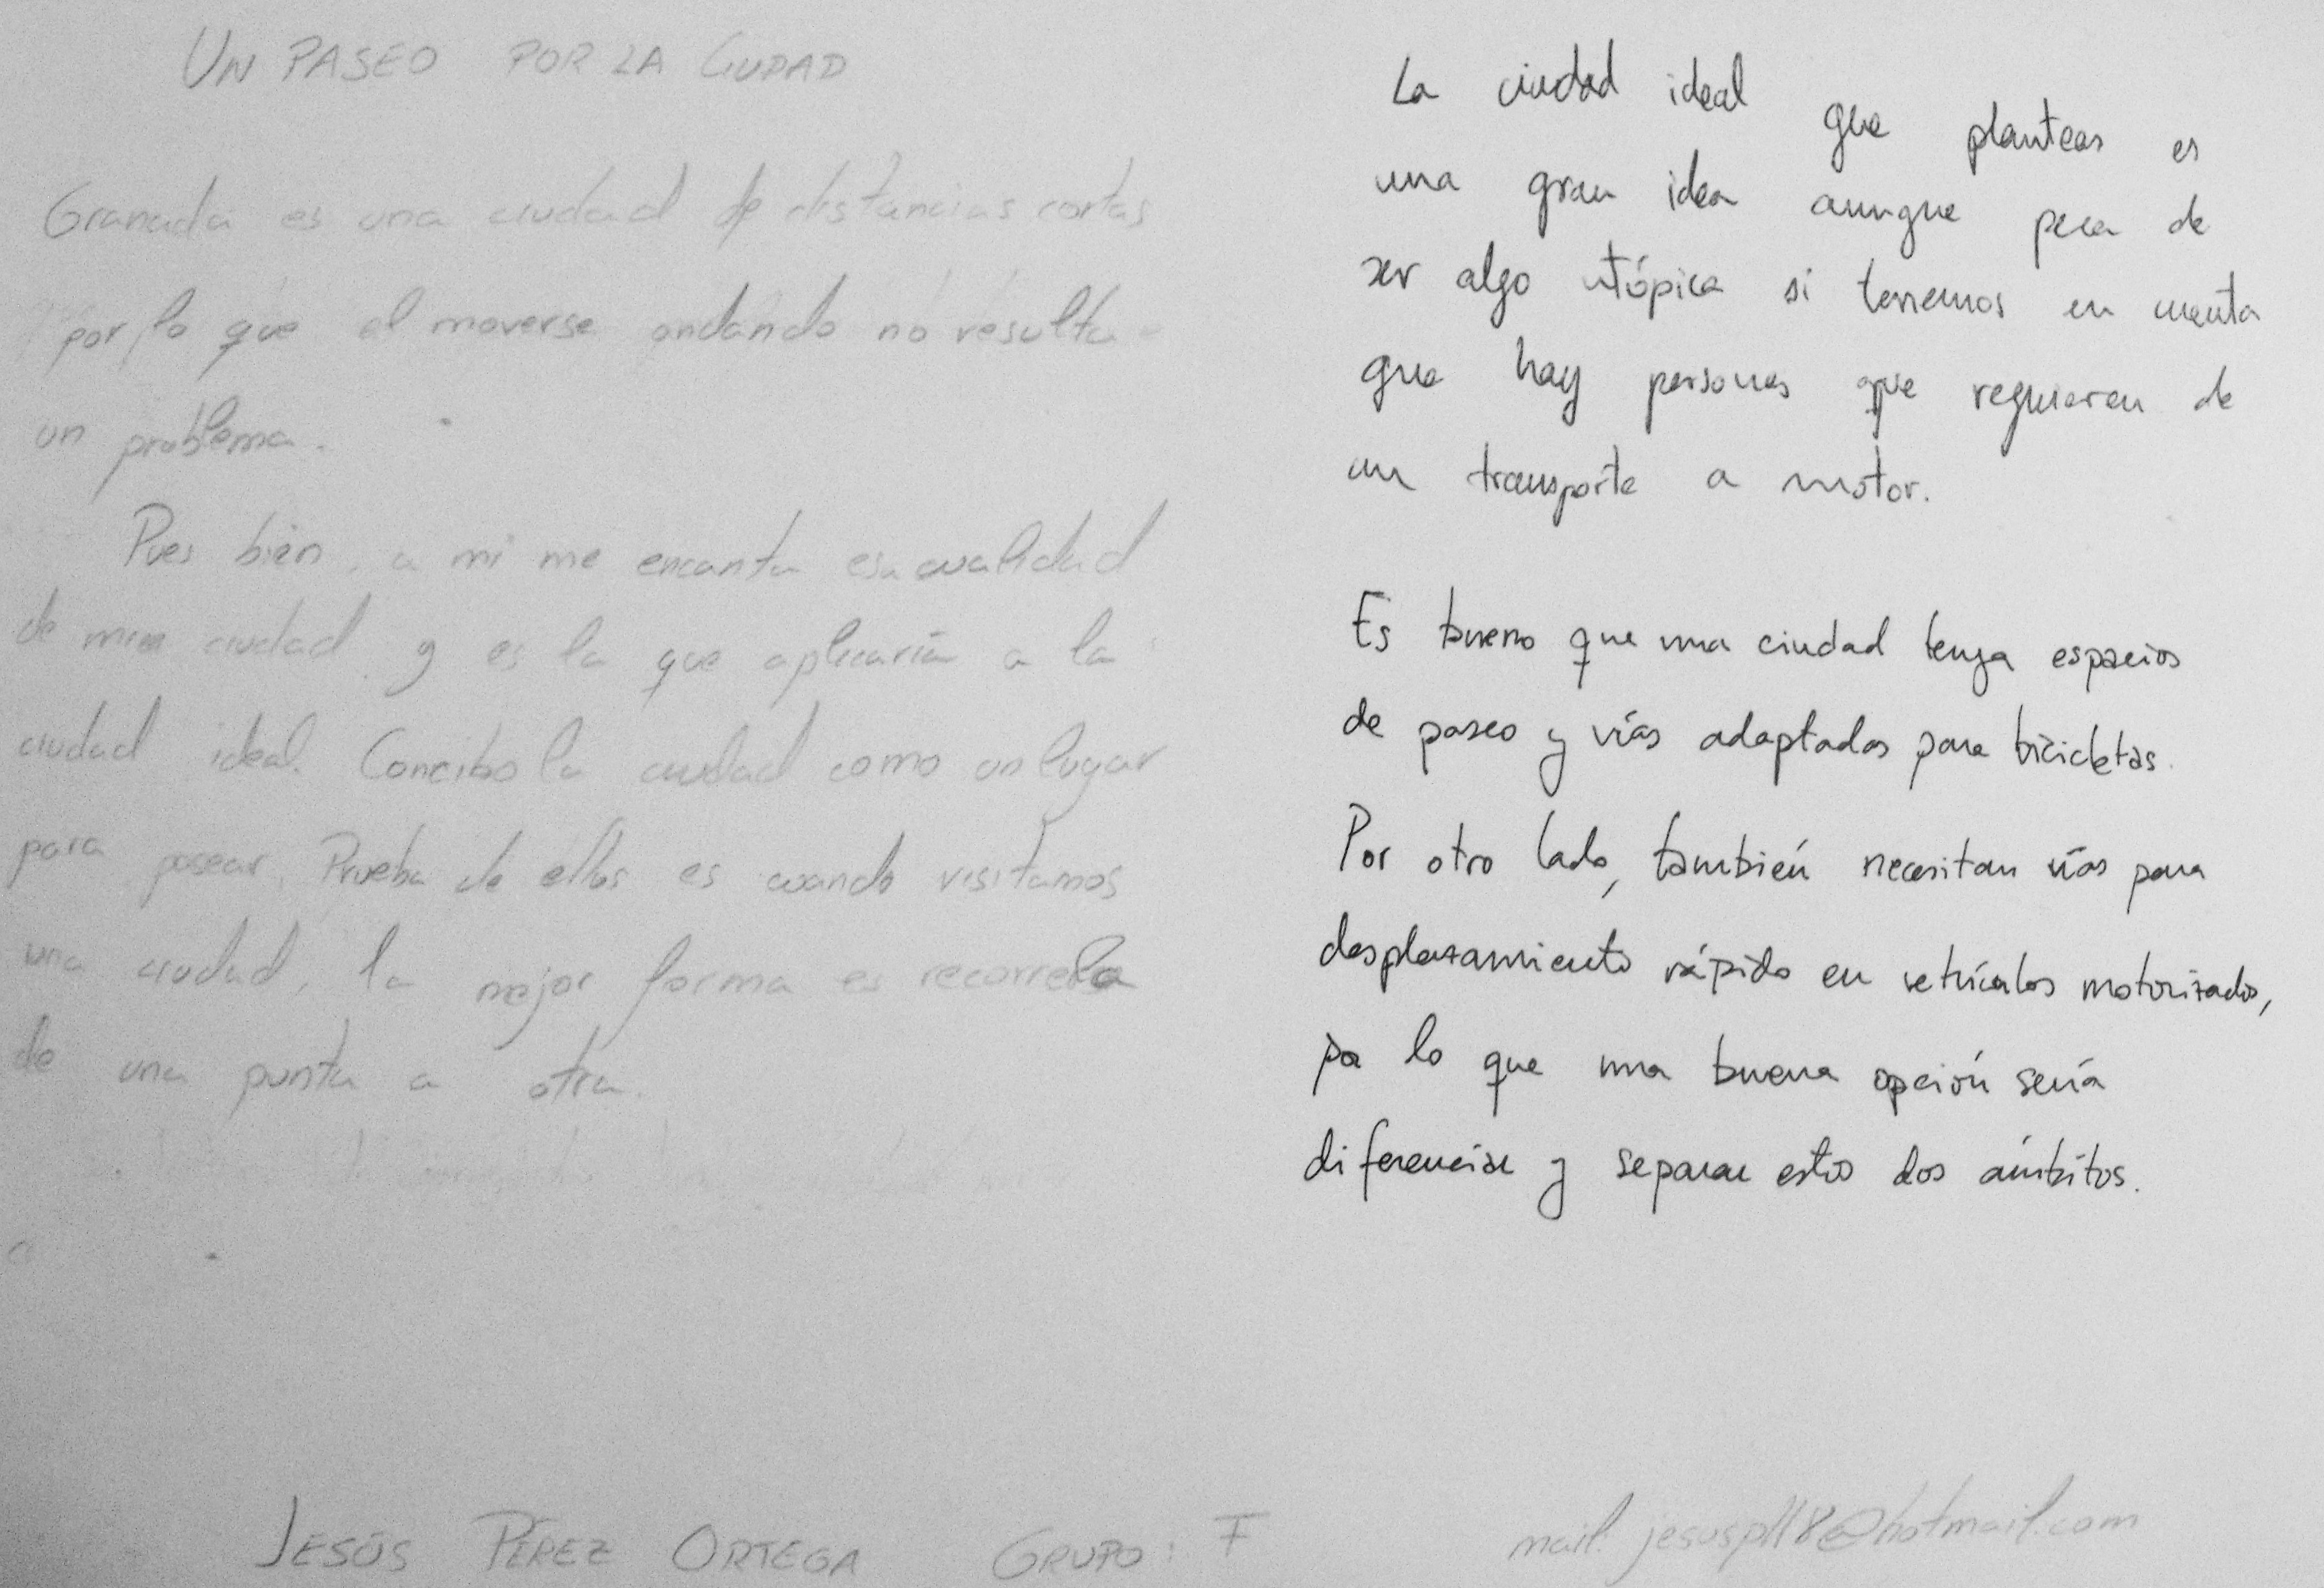 UN PASEO POR LA CIUDAD
Granada es una ciudad de distancias cortas
por lo que el moverse andando no resulta
un problema.
Pues bien, a mi me encanta esa cualidad
de mi ciudad y es la que aplicaría a la
ciudad ideal. Concibo la ciudad como un lugar
para pasear. Prueba de ellos es cuando visitamos
una ciudad, la mejor forma es recorrerla
de una punta a otra.
La ciudad ideal que planteas es
una gran idea aunque peca de
ser algo utópica si tenemos en cuenta
que hay personas que requieren de
un transporte a motor.
Es bueno que una ciudad tenga espacios
de paseo y vías adaptadas para bicicletas.
Por otro lado, también necesitan vías para
desplazamiento rápido en vehículos motorizados,
por lo que una buena opción sería
diferenciar y separar estos dos ámbitos.
JESÚS PÉREZ ORTEGA GRUPO: F
mail: